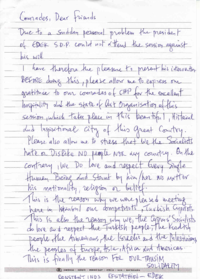 Comrades, Dear Friends
Due to a sudden personal problem the president
of EDEK S.D.P could not attend the session against
his will
I have therefore the pleasure to present his
BEFORE doing this, please allow me to express our
gratitude to our comrades of CHP for the excellent
hospitality and the state of Art Organisation of this
session which take place in this beautiful, historical
and important city of this Great Country.
Please also allow me to stress that the Socialists
hate or Dislike no people nor any country. On the
contrary we Do love and respect Every Single
Human Being and stand by him/her no matter
his nationality, religion or belief.
This is the reason why we were pleased meeting
here in Istanbul our compatriots, Turkish Cypriots
This is also the reason why we, the Cyprus Socialists
do love and respect the Turkish people, the Kurdish
people, the Armenians, the Israelis and the Palestinians,
the peoples of Europe, Asia, Africa and America
This is finally the reason FOR OUR
SOLIDARITY
CONSTANTINOS - EDEK